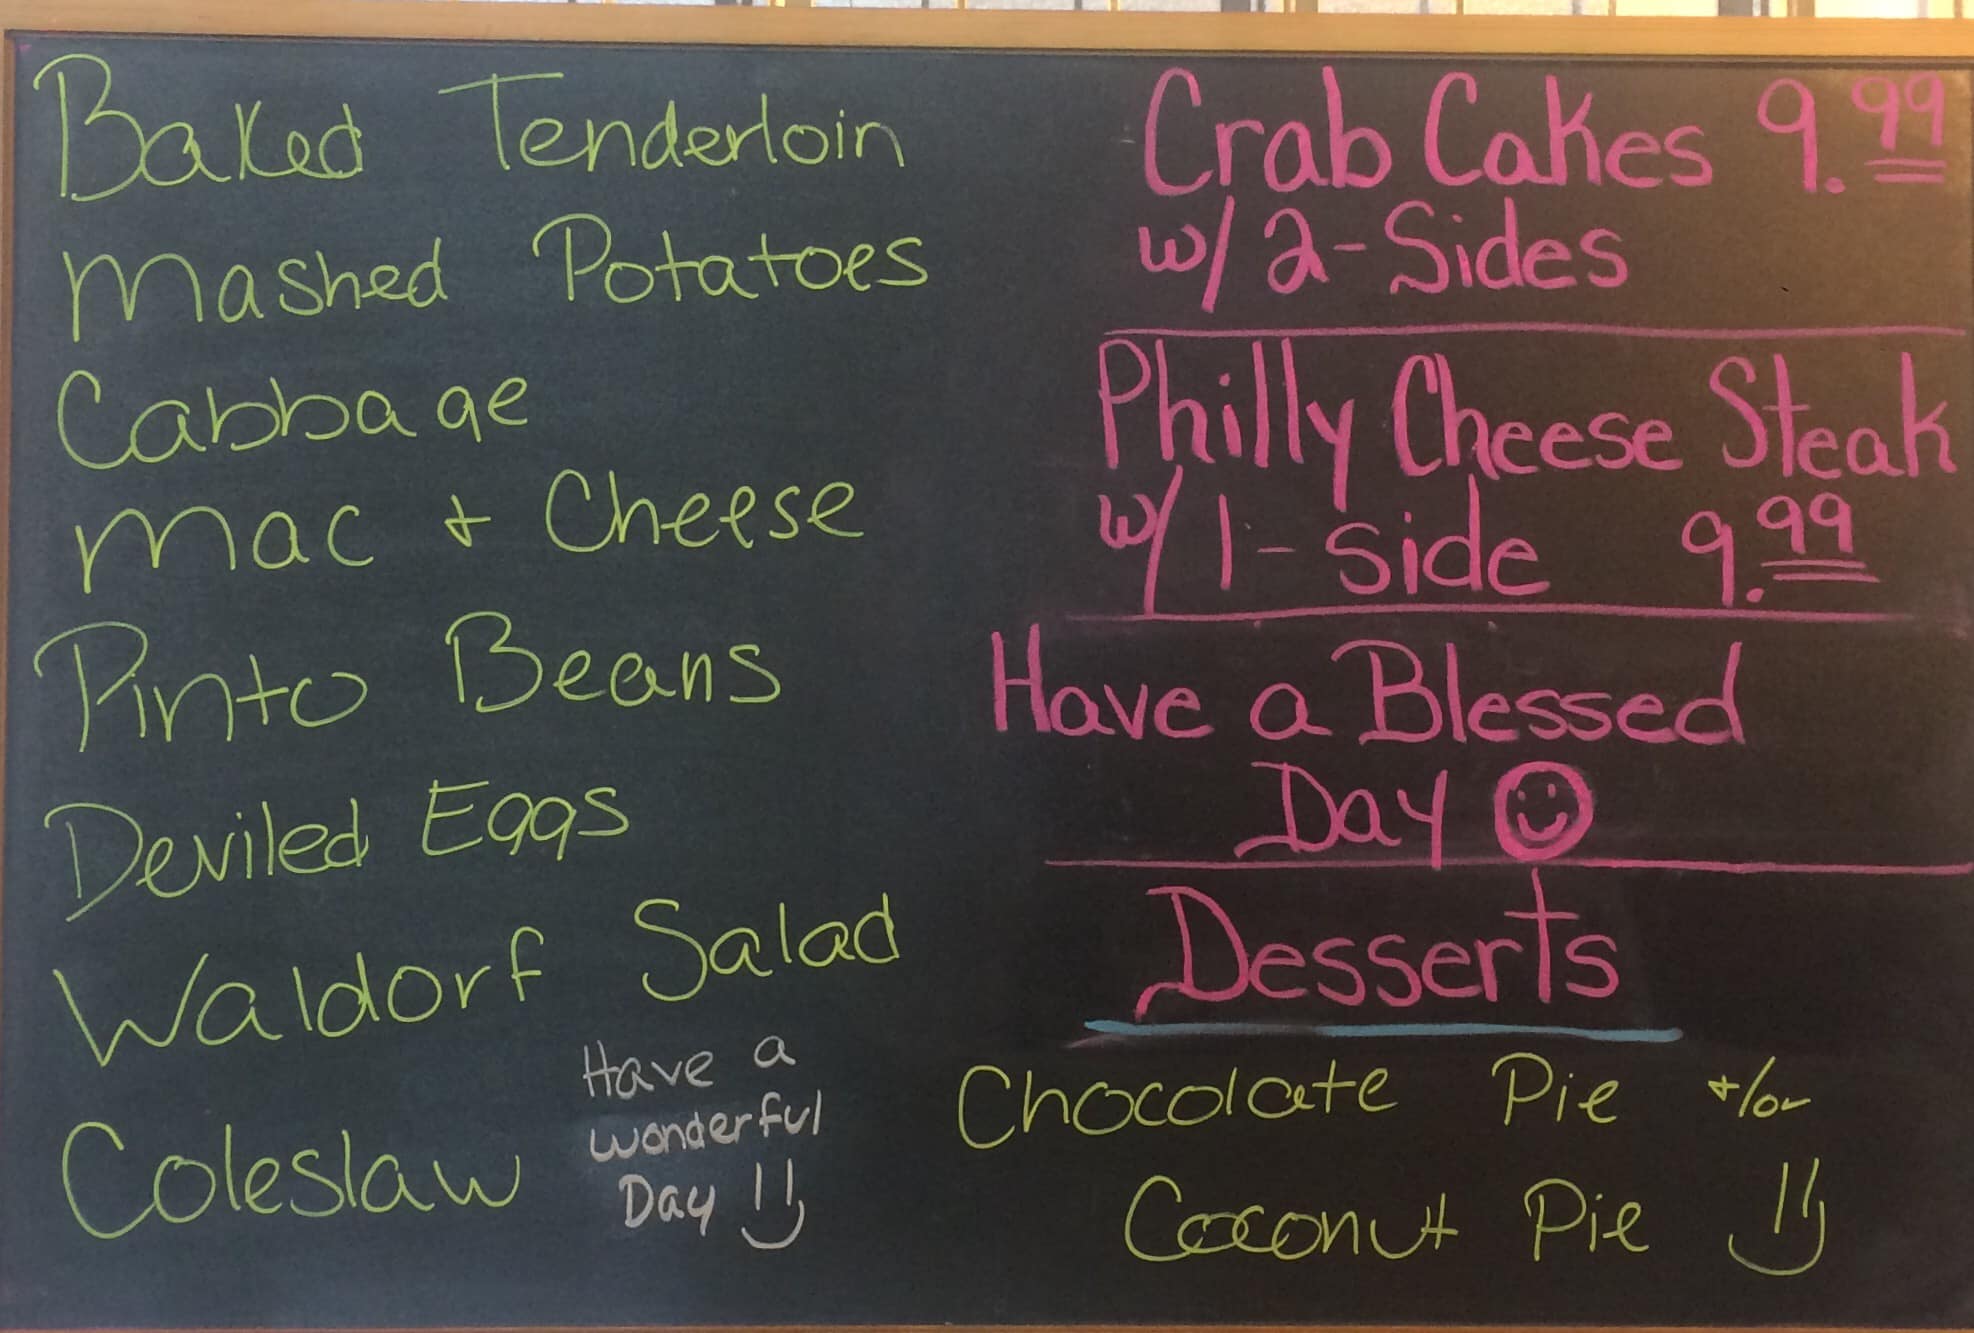 Baked Tenderloin
Mashed Potatoes
Cabbage
Mac + Cheese
Pinto Beans
Deviled Eggs
Waldorf Salad
Coleslaw
Have a
wonderful
Day
Crab Cakes 9.99
w/ 2-Sides
Philly Cheese Steak
w/ 1-Side 9.99
Have a Blessed
Day
Desserts
Chocolate Pie +/or
Coconut Pie